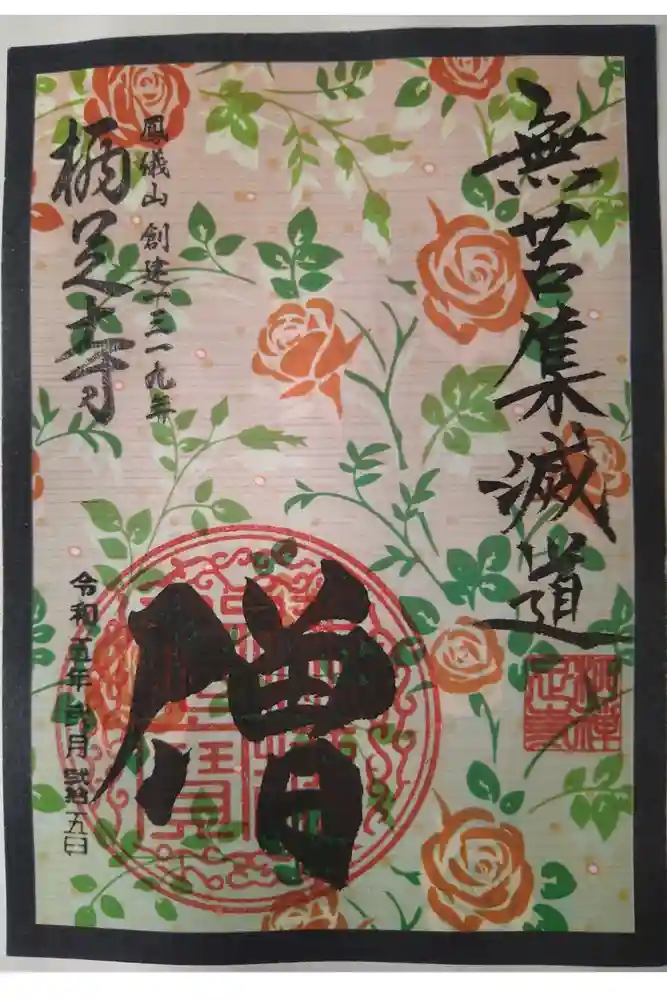 無苦集滅道
鳳儀山 創建一三一九年
栖足寺
令和五年 弐月 弐拾五日